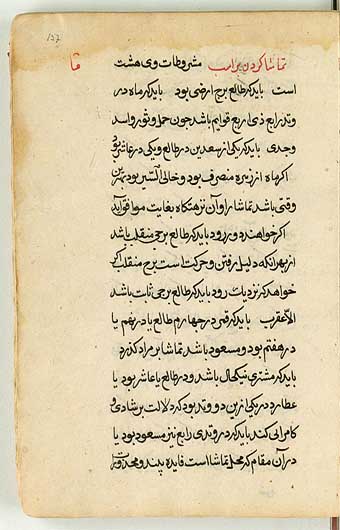 ۱۳۷
تماشا کردن برآب مشروطات وی هشت قا
است باید که طالع برج ارضی بود باید که ماه در
وتد رابع ذی اربع قوایم باشد چون حمل و ثور و اسد
و جدی باید که یکی از سعدین در طالع و یکی در عاشر بود
اگر ماه از زهره منصرف بود و خالی السیر بود بهترین
وقتی باشد تماشا را و آن نزهتکاه بغایت موافق آید
اکر خواهند دور رود باید که طالع برجی منقلب باشد
از بهر انکه دلیل رفتن و حرکت است برج منقلب اکر
خواهد که نزدیک رود باید که طالع برجی ثابت باشد
الا عقرب باید که قمر در چهارم طالع یا در نهم یا
در هفتم بود و مسعود باشد تماشا بر مراد کذرد
باید که مشتری نیکحال باشد و در طالع یا عاشر بود یا
عطارد در یکی ازین دو وتد بود که دلالت بر شادی و
کامرانی کند باید که در وتدی رابع نیز مسعود بود یا
در آن مقام که محل تماشا است فایده بیند و